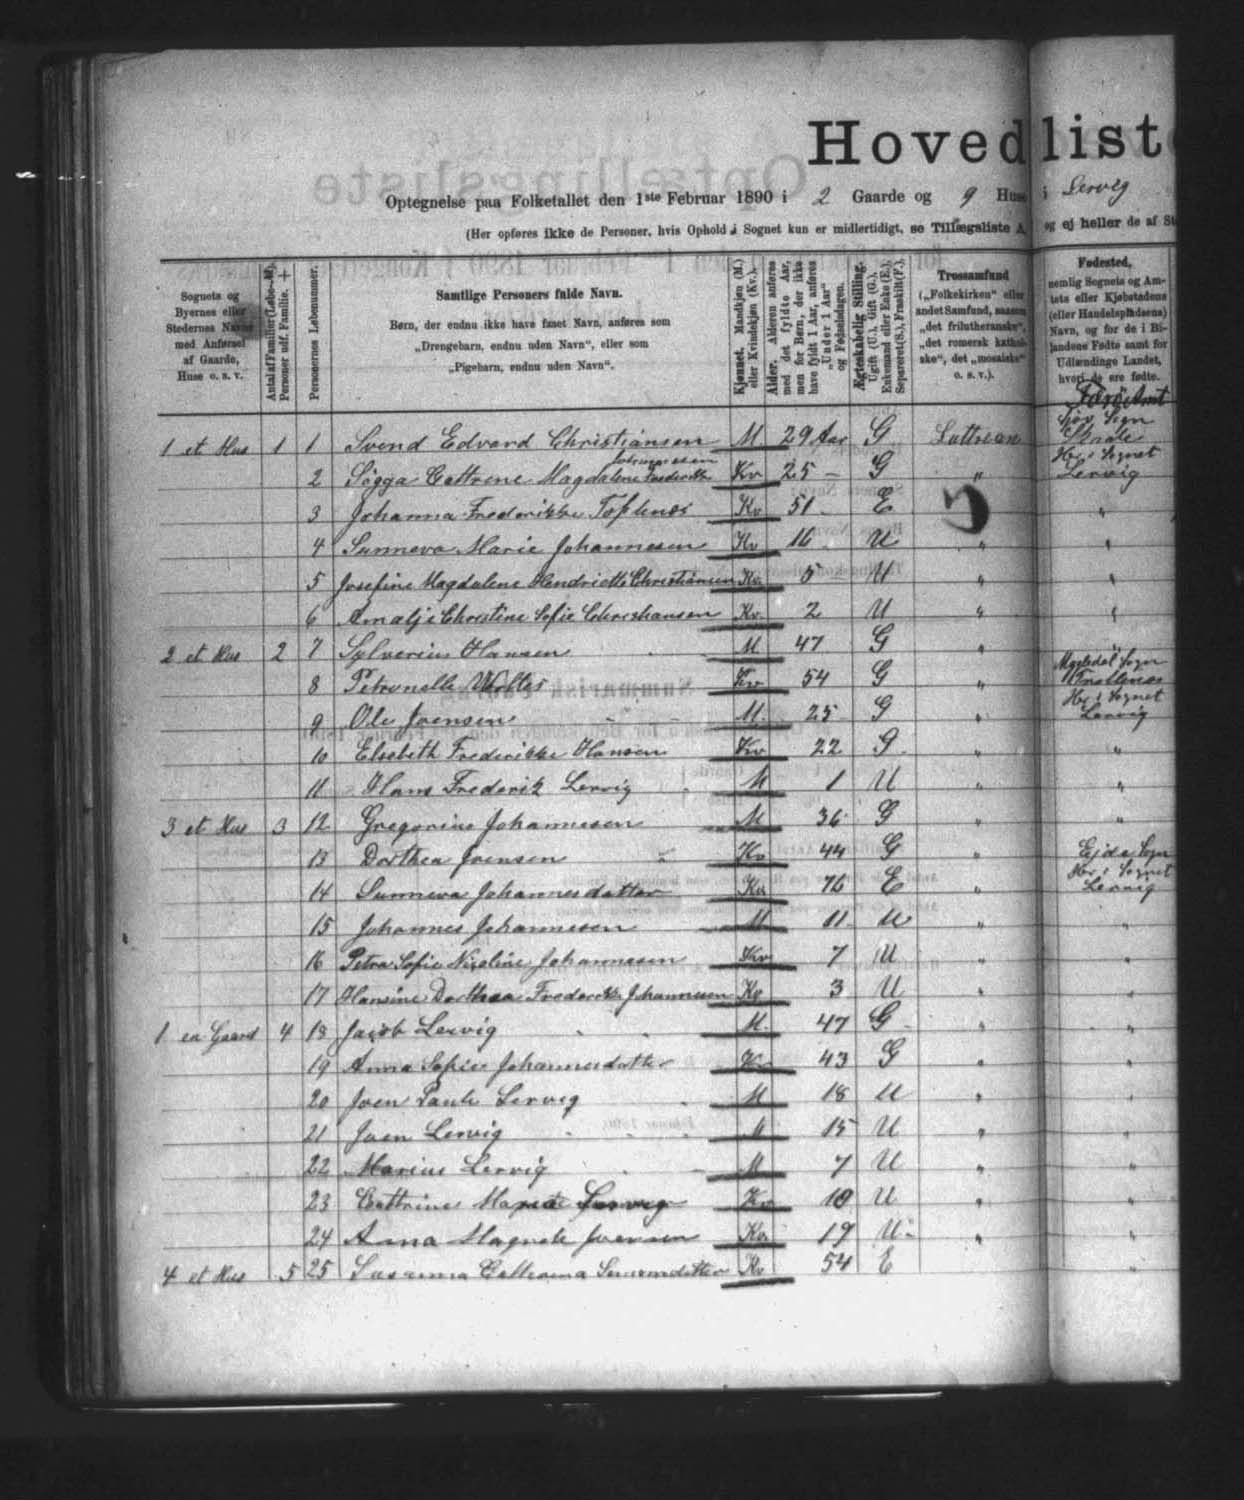 Hovedliste
Optegnelse paa Folketallet den 1ste Februar 1890 i 2 Gaarde og 9 Huse i Lervig
(Her opføres ikke de Personer, hvis Ophold i Sognet kun er midlertidigt, se Tillægsliste A, og ej heller de af St
Sognets og Byernes eller Stedernes Navne med Anførsel af Gaarde, Huse o. s. v.
Antal af Familier (Løbe-№). Personer udf. Familie. +
Personernes Løbenummer.
Samtlige Personers fulde Navn.
Børn, der endnu ikke have faaet Navn, anføres som
„Drengebarn, endnu uden Navn“, eller som
„Pigebarn, endnu uden Navn“.
Kjønnet. Mandkjøn (M.) eller Kvindekjøn (Kv.).
Alder. Alderen anføres med det fyldte Aar, men for Børn, der ikke have fyldt 1 Aar, anføres „Under 1 Aar“ og Fødselsdagen.
Ægteskabelig Stilling. Ugift (U.), Gift (G.), Enkemand eller Enke (E.), Separeret (S.), Fraskilt (F.).
Trossamfund
(„Folkekirken“ eller andet Samfund, saasom „det frilutheranske“, „det romersk katholske“, det „mosaiske“ o. s. v.).
Fødested,
nemlig Sognets og Amtets eller Kjøbstadens (eller Handelspladsens) Navn, og for de i Bilandene Fødte samt for Udlændinge Landet, hvori de ere fødte.
Færø Amt
1 et Hus 1 1 Svend Edvard Christiansen M 29 Aar G Luthran Sogn
Johannessen
2 Sigga Cathrine Magdalene Frederikke Kv 25 G „ Her i Sognet Lervig
3 Johanna Frederikke Kv 51 E „
4 Sunneva Marie Johannesen Kv 16 U „ „
5 Josefine Magdalene Hendriette Christiansen Kv 5 U „ „
6 Amalje Christine Sofie Christiansen Kv 2 U „ „
2 et Hus 2 7 Sylverius Hansen M 47 G „ „
8 Petronelle Kv 54 G „ Sogn
9 Ole Joensen M. 25 G „ Her i Sognet Lervig
10 Elsebeth Frederikke Hansen Kv 22 G. „ „
11 Hans Frederik Lervig M 1 U „ „
3 et Hus 3 12 Gregorius Johannesen M 36 G „ „
13 Dorthea Joensen Kv 44 G „ Ejde Sogn
14 Sunneva Johannesdatter Kv 76 E „ Her i Sognet Lervig
15 Johannes Johannesen M 11 U „ „
16 Petra Sofie Nicoline Johannesen Kv 7 U „ „
17 Hansine Dorthea Frederikke Johannesen Kv 3 U „ „
1 en Gaard 4 18 Jacob Lervig M. 47 G „ „
19 Anna Sofie Johannesdatter Kv 43 G „ „
20 Joen Paule Lervig M 18 U „ „
21 Joen Lervig M 15 U „ „
22 Marius Lervig M 7 U „ „
23 Cathrine Lervig Kv 10 U „ „
24 Anna Joensen Kv 19 U „ „
4 et Hus 5 25 Susanna Cathrina Kv 54 E „